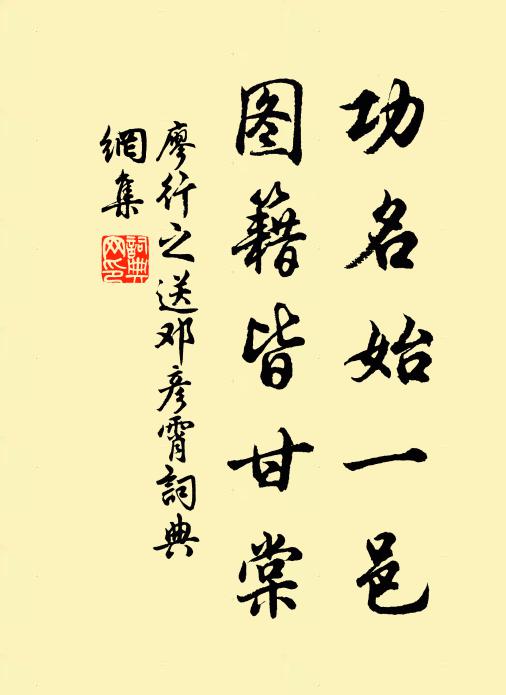 功名始一邑
图籍皆甘棠
廖行之送邓彦霄詞典
網集
詞典网印